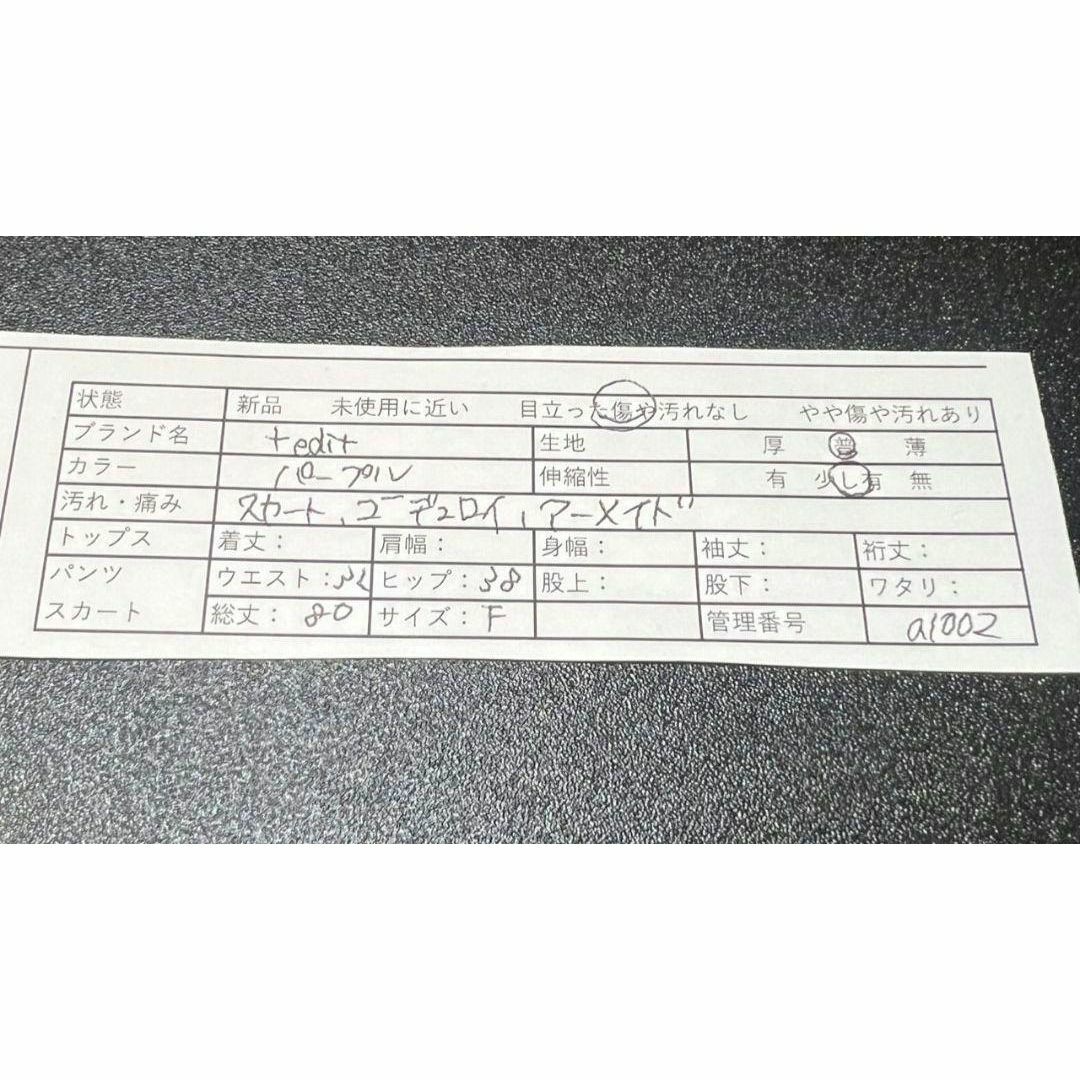 状態 新品 未使用に近い 目立った傷や汚れなし やや傷や汚れあり
ブランド名 tedit 生地 厚 普 薄
カラー パープル 伸縮性 有 少し有 無
汚れ・痛み スカート、コーデュロイ、アーメイド
トップス 着丈： 肩幅： 身幅： 袖丈： 裄丈：
パンツ ウエスト：32 ヒップ：38 股上： 股下： ワタリ：
スカート 総丈：80 サイズ：F 管理番号 a1002